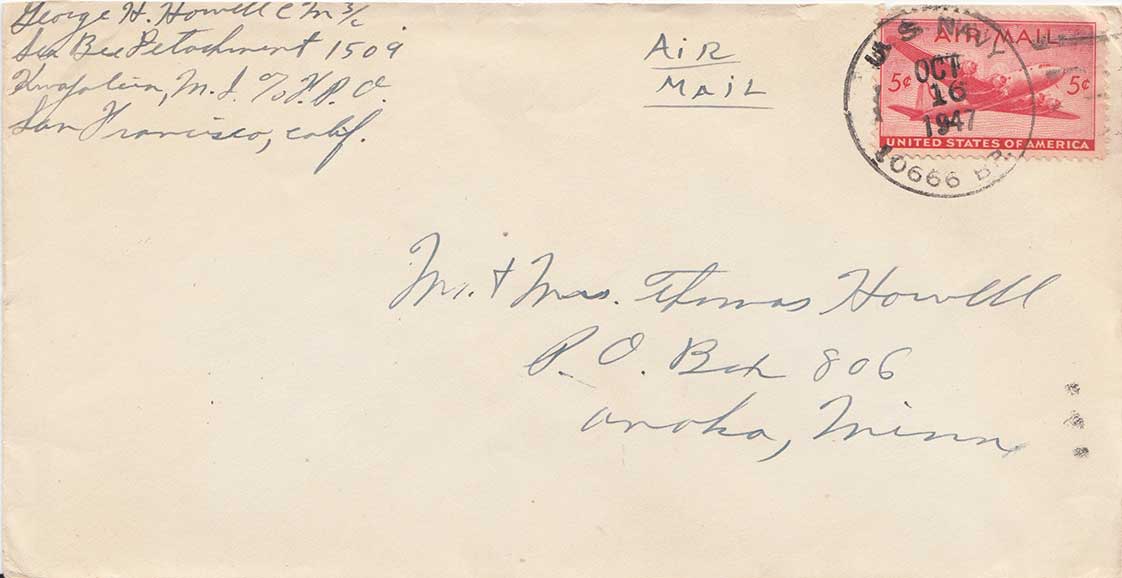 George H. Howell CM 3/c
Sea Bee Detachment 1509
Kwajalein, M.I. c/o F.P.O.
San Francisco, Calif.
AiR
MAiL
U.S. NAVY
OCT
16
1947
10666 BR.
AIR MAIL
5¢ 5¢
UNITED STATES OF AMERICA
Mr. + Mrs. Thomas Howell
P.O. Box 806
Anoka, Minn.